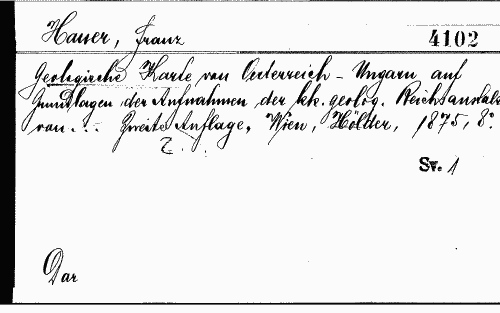 Hauer, Franz
4102
Geologische Karte von Oesterreich - Ungarn auf
Grundlagen der Aufnahmen der kk. geolog. Reichsanstalt
von... Zweite Auflage, Wien, Hölder, 1875, 8º.
Z.
Sv. 1
Dar